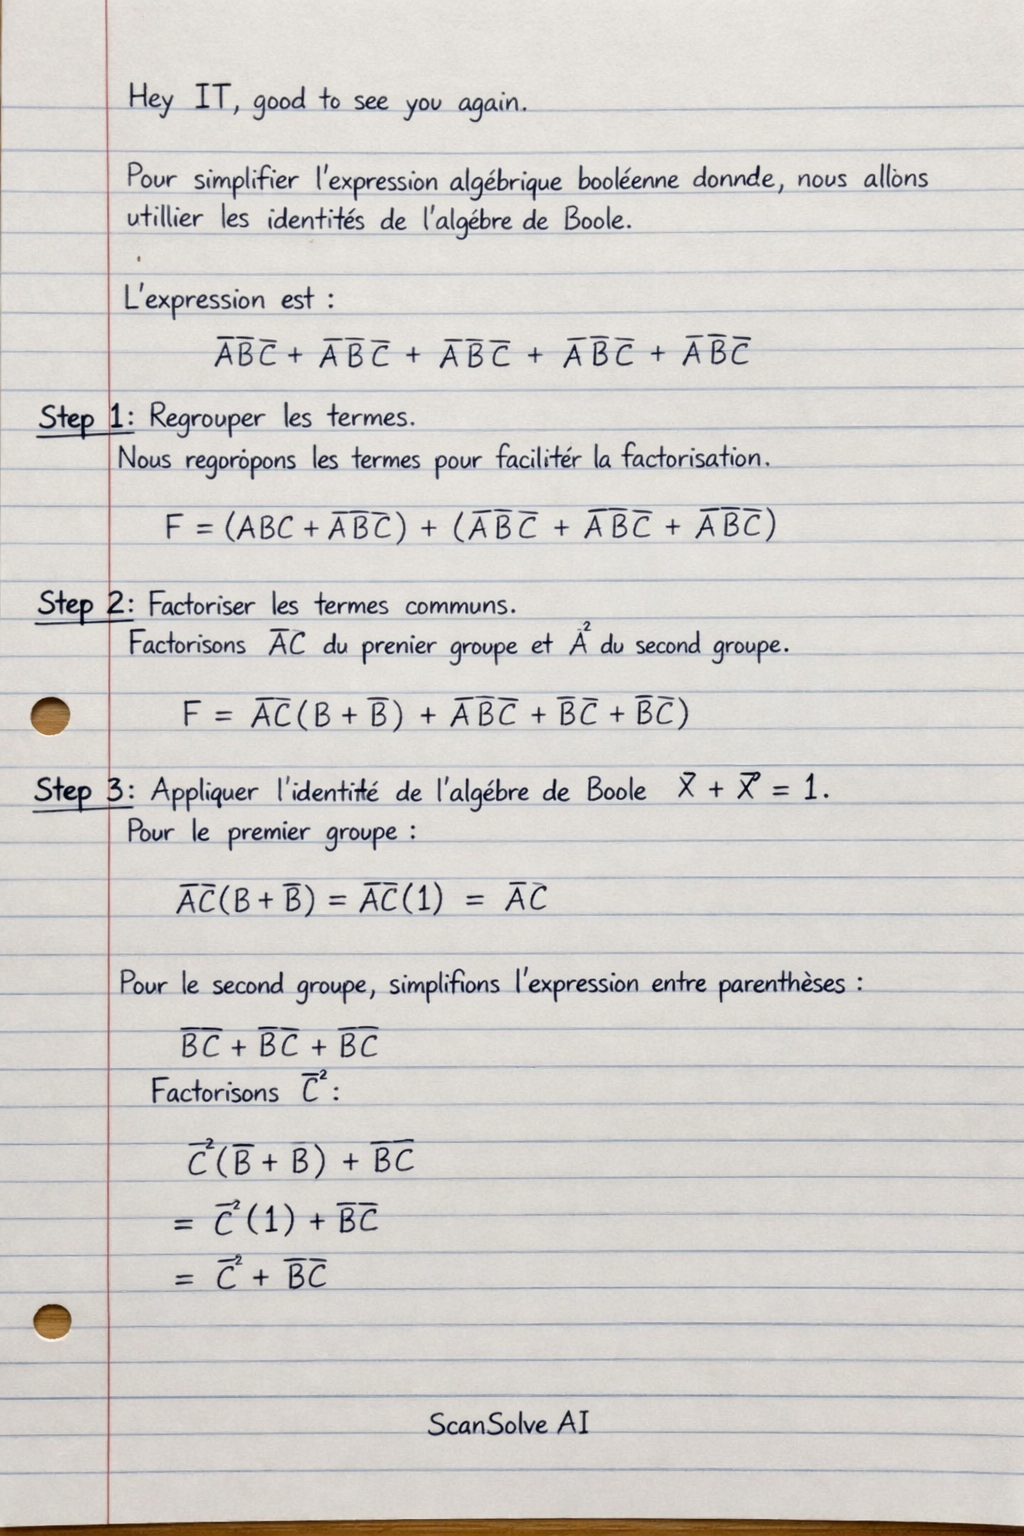 Hey IT, good to see you again.
Pour simplifier l'expression algébrique booléenne donnde, nous allòns
utillier les identités de l'algébre de Boole.
L'expression est :
A̅B̅C̅ + A̅B̅C̅ + A̅B̅C̅ + A̅B̅C̅ + A̅B̅C̅
Step 1: Regrouper les termes.
Nous regoròpons les termes pour facilitér la factorisation.
F = (ABC + A̅B̅C̅) + (A̅B̅C̅ + A̅B̅C̅ + A̅B̅C̅)
Step 2: Factoriser les termes communs.
Factorisons A̅C̅ du prenier groupe et A² du second groupe.
F = A̅C̅(B + B̅) + A̅B̅C̅ + B̅C̅ + B̅C̅)
Step 3: Appliquer l'identité de l'algébre de Boole X̅ + X⃗ = 1.
Pour le premier groupe :
A̅C̅(B + B̅) = A̅C̅(1) = A̅C̅
Pour le second groupe, simplifions l'expression entre parenthèses :
B̅C̅ + B̅C̅ + B̅C̅
Factorisons C̅²:
C̅²(B̅ + B) + B̅C̅
= C̅²(1) + B̅C̅
= C̅² + B̅C̅
ScanSolve AI